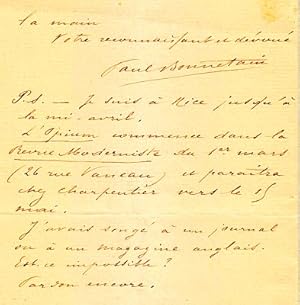 la main
Votre reconnaissant et dévoué
Paul Bonnetain
P.S. — Je suis à Nice jusqu'à
la mi-avril.
L'Opium commence dans la
Revue Moderniste du 1er mars
(26 rue Vaneau) et paraîtra
chez Charpentier vers le 15
mai.
J'avais songé à un journal
ou à un magazine anglais.
Est ce impossible?
Pardon encore.